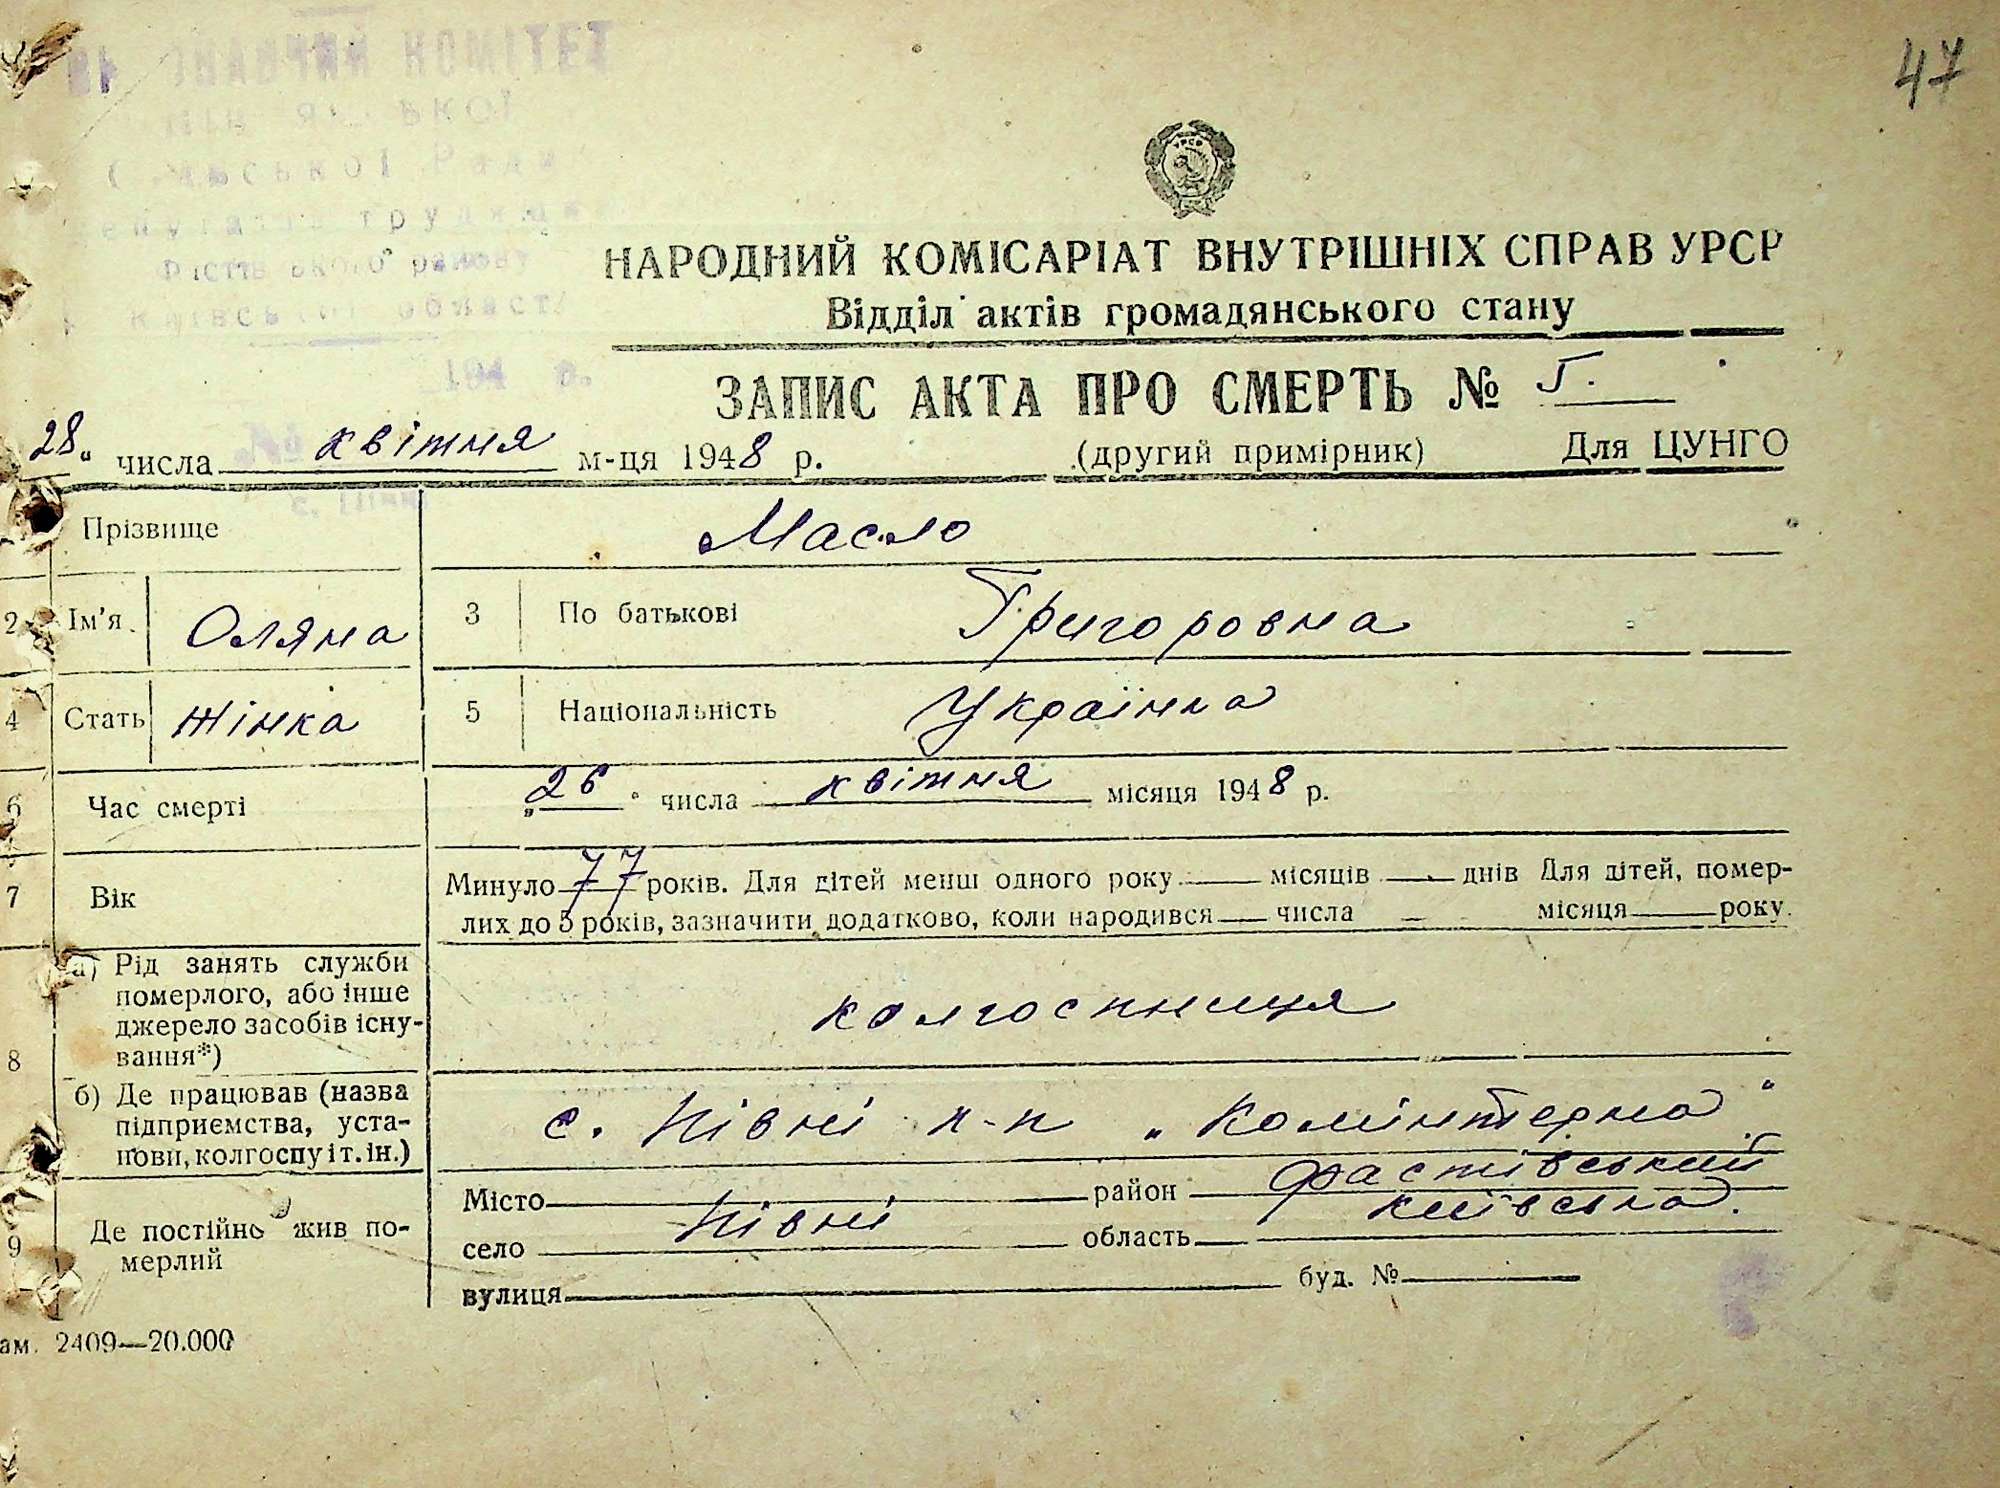 47
КОМІТЕТ
району
області
194 р.
УРСР
НАРОДНИЙ КОМІСАРІАТ ВНУТРІШНІХ СПРАВ УРСР
Відділ актів громадянського стану
ЗАПИС АКТА ПРО СМЕРТЬ № 5.
28" числа квітня м-ця 1948 р. (другий примірник) Для ЦУНГО
Прізвище Масло
2 Ім'я Оляна 3 По батькові Григоровна
4 Стать Жінка 5 Національність Українка
6 Час смерті „26" числа квітня місяця 1948 р.
7 Вік Минуло 77 років. Для дітей менш одного року — місяців — днів Для дітей, помер-
лих до 5 років, зазначити додатково, коли народився — числа — місяця — року.
8 а) Рід занять служби
померлого, або інше
джерело засобів існу-
вання*)
колгоспниця
б) Де працював (назва
підприємства, уста-
нови, колгоспу і т. ін.)
с. Півні к-п „Комінтерна"
9 Де постійно жив по-
мерлий
Місто район Фастівський
село Півні область Київська.
вулиця буд. №
ам. 2409—20.000